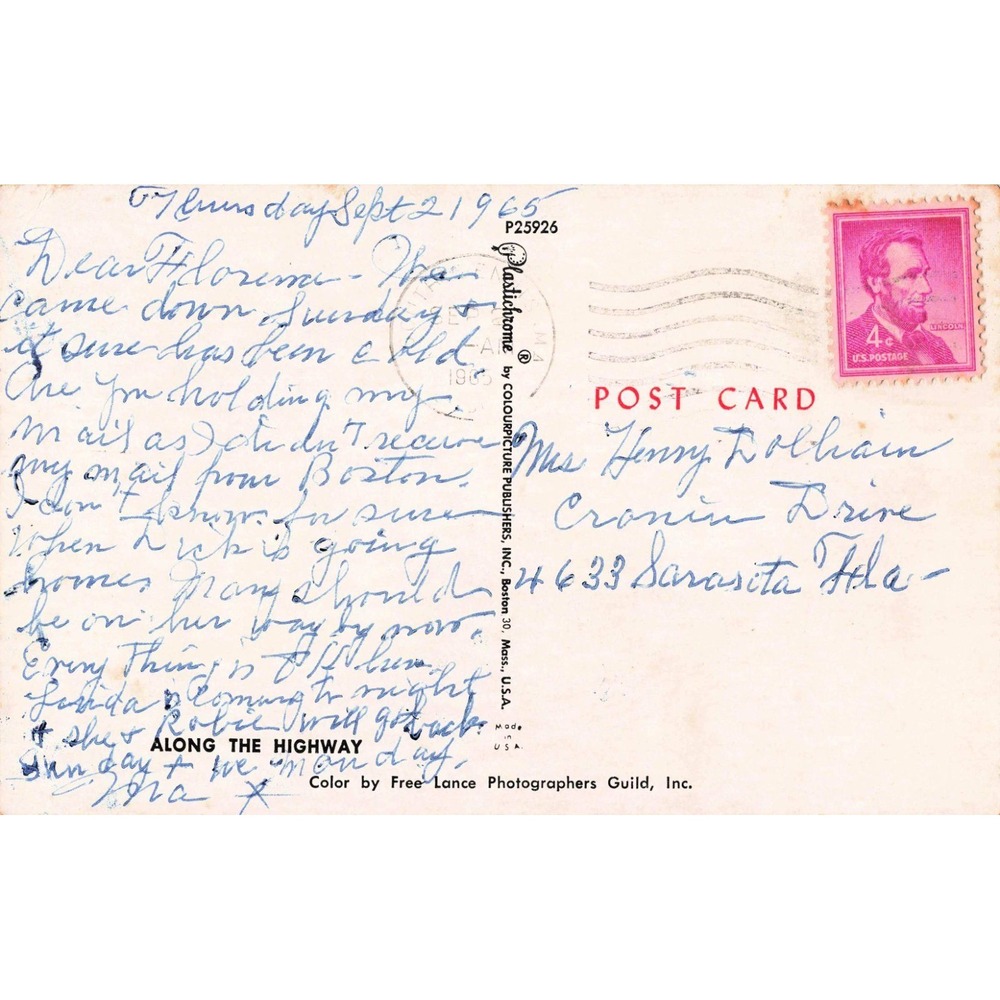 Thursday Sept 2 1965
Dear Florena - We
came down Sunday +
it sure has been cold.
Are you holding my
mail as I didn't receive
any mail from Boston.
I don't know for sure
when Dick is going
home. Mary should
be on her way by now.
Every Thing is
Linda is coming to night
+ she + Robie will go back
Sunday + we Monday.
X
P25926
Plastichrome ® by COLOURPICTURE PUBLISHERS, INC., Boston 30, Mass., U.S.A.
Made
in
U S A.
1965
4¢
LINCOLN
U.S. POSTAGE
POST CARD
Mrs Henry
Cronin Drive
4633 Sarasota Fla -
ALONG THE HIGHWAY
Color by Free Lance Photographers Guild, Inc.